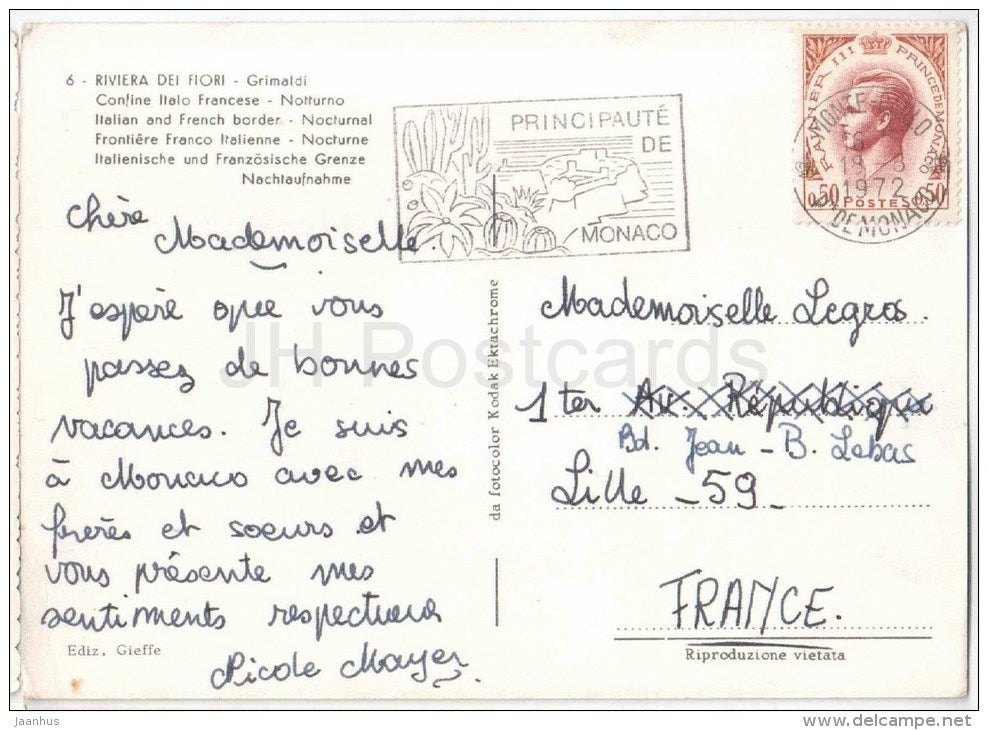 6 - RIVIERA DEI FIORI - Grimaldi
Confine Italo Francese - Notturno
Italian and French border - Nocturnal
Frontière Franco Italienne - Nocturne
Italienische und Französische Grenze
Nachtaufnahme
PRINCIPAUTÉ
DE
MONACO
RAINIER III PRINCE DE MONACO
0,50 POSTES 0,50
1972
Pté DE MONACO
Chère
Mademoiselle.
J'espère que vous
passez de bonnes
vacances. Je suis
à Monaco avec mes
frères et soeurs et
vous présente mes
sentiments respectueux
Nicole Mayer
Ediz. Gieffe
da fotocolor Kodak Ektachrome
Mademoiselle Legros.
1 ter Av. République
Bd. Jean - B. Lebas
Lille - 59 -
FRANCE.
Riproduzione vietata
JH Postcards
Jaanhus
www.delcampe.net